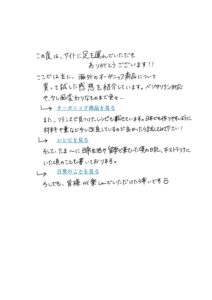 この度は、サイトに足を運んでいただき
ありがとうございます!!
ここでは主に、海外のオーガニック商品について
買って試した感想を紹介しています。ベジタリアン対応
や、少し風変わりなものまで色々…
オーガニック商品を見る
また、フランスで見つけたレシピも載せています。日本でも作りやすいように
材料や量など少し改良しているので良かったら試してみて下さい!
レシピを見る
そして、たま〜に日常生活や留学で来ていた頃の日記、オーストラリアに
いた頃のことも書いております。
日常のことを見る
少しでも、皆様が楽しんでいただけたら幸いです